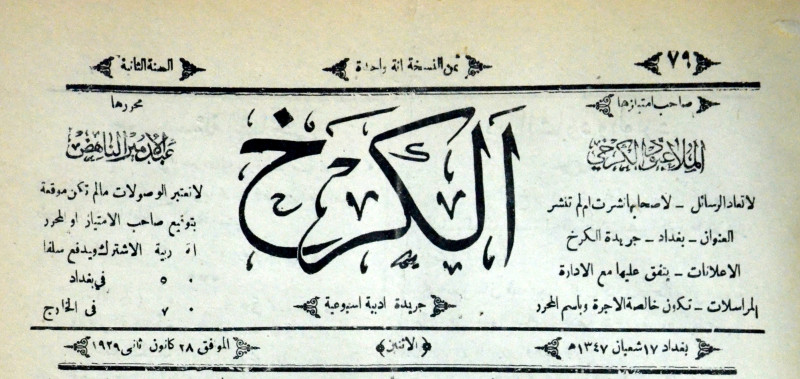 ٧٩
ثمن النسخة انة واحدة
السنة الثانية
صاحب امتيازها
الملا عبود الكرخي
لا تعاد الرسائل – لاصحابها نشرت ام لم تنشر
العنوان – بغداد – جريدة الكرخ
الاعلانات – يتفق عليها مع الادارة
المراسلات – تكون خالصة الاجرة وباسم المحرر
الكرخ
جريدة ادبية اسبوعية
محررها
عبد الامير الناهض
لا تعتبر الوصولات مالم تكن موقعة
بتوقيع صاحب الامتياز او المحرر
ربية الاشتراك ويدفع سلفا
٥٠ في بغداد
٧٠ في الخارج
بغداد ١٧ شعبان ١٣٤٧هـ
(الاثنين)
الموافق ٢٨ كانون ثاني ١٩٢٩